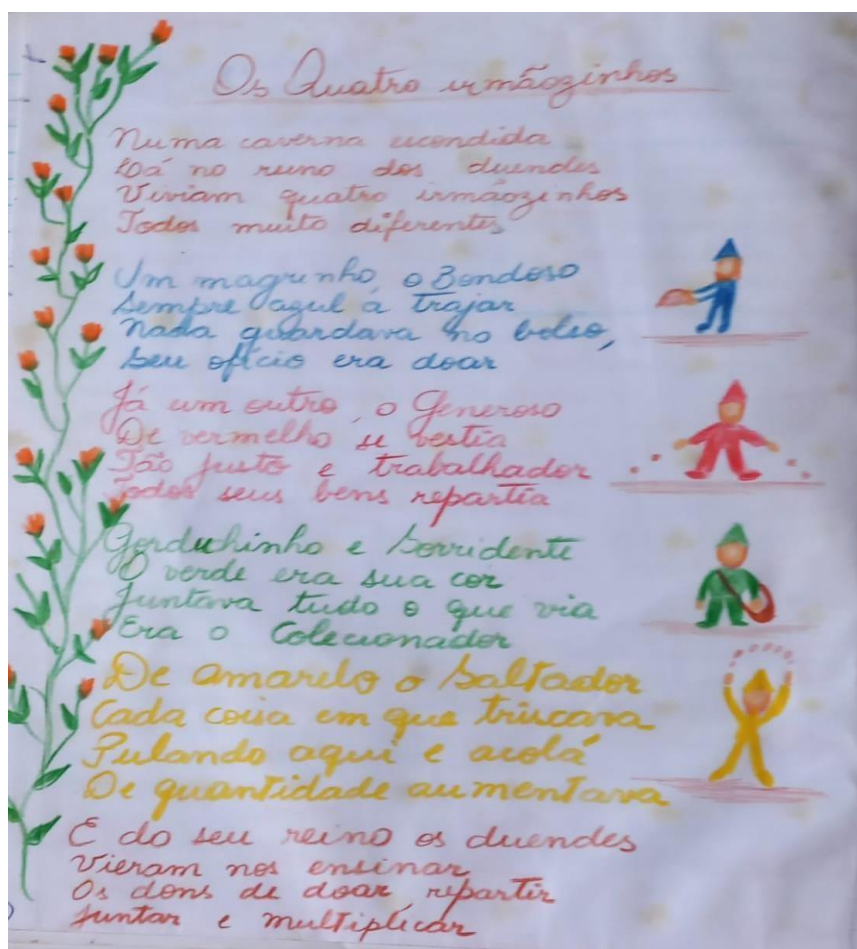 Os Quatro irmãozinhos
Numa caverna escondida
Lá no reino dos duendes
Viviam quatro irmãozinhos
Todos muito diferentes
Um magrinho, o Bondoso
Sempre azul a trajar
Nada guardava no bolso,
Seu ofício era doar
Já um outro, o Generoso
De vermelho se vestia
Tão justo e trabalhador
Todos seus bens repartia
Gorduchinho e Sorridente
O verde era sua cor
Juntava tudo o que via
Era o Colecionador
De amarelo o Saltador
Cada coisa em que triscava
Pulando aqui e acolá
De quantidade aumentava
E do seu reino os duendes
Vieram nos ensinar
Os dons de doar repartir
Juntar e multiplicar